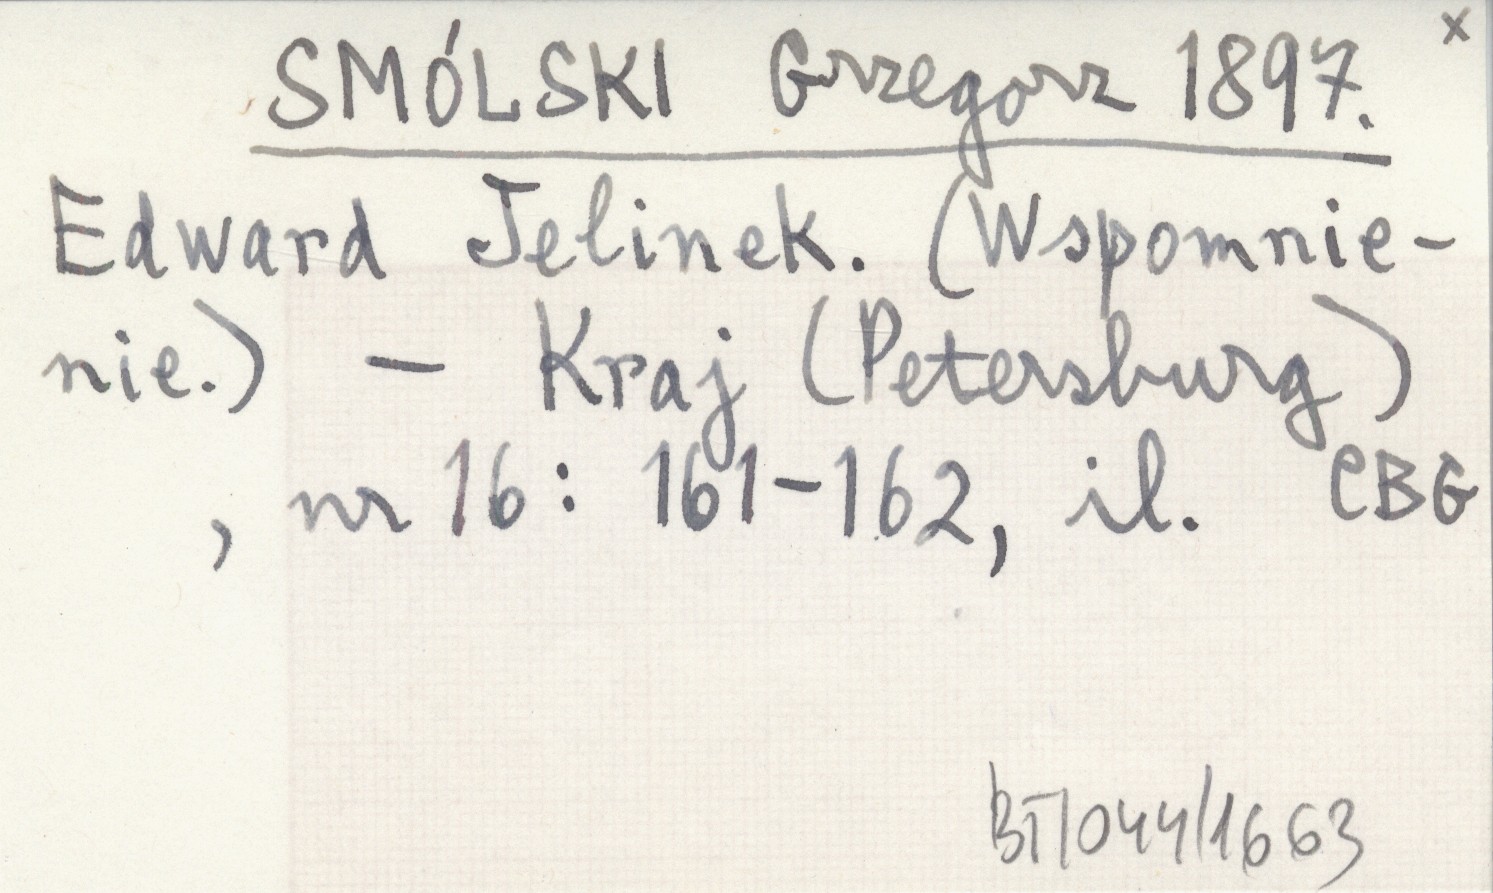 x
SMÓLSKI Grzegorz 1897.
Edward Jelinek. (Wspomnie-
nie.) – Kraj (Petersburg)
, nr 16: 161–162, il. CBG
BT/044/1663